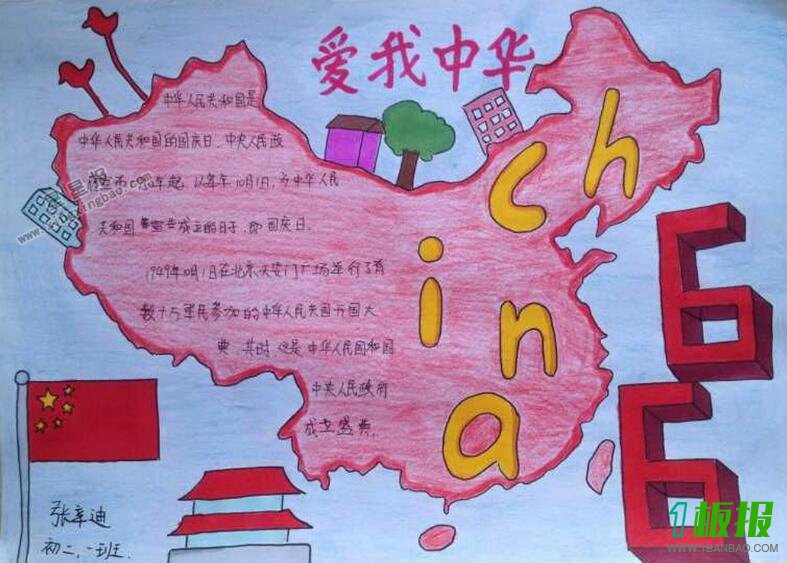 爱我中华
中华人民共和国是
中华人民共和国的国庆日. 中央人民政
年起, 以每年10月1日, 为中华人民
共和国 宣告成立的日子, 即国庆日。
1949年10月1日在北京天安门广场举行了有
数十万军民参加的中华人民共国开国大
典, 其时 这是中华人民国和国
中央人民政府
成立盛典.
china
66
张幸迪
初二.一班.
1板报
WWW.1BANBAO.COM